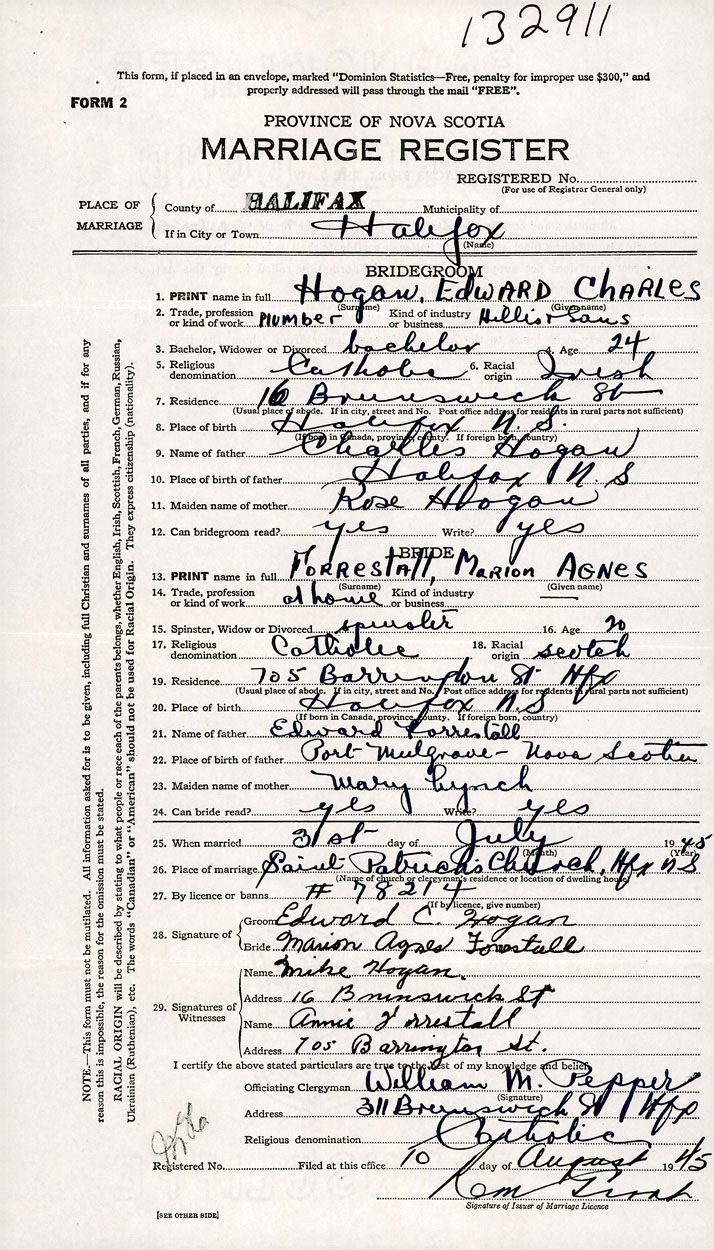 132911
This form, if placed in an envelope, marked "Dominion Statistics—Free, penalty for improper use $300," and
properly addressed will pass through the mail "FREE".
FORM 2
PROVINCE OF NOVA SCOTIA
MARRIAGE REGISTER
REGISTERED No.
(For use of Registrar General only)
PLACE OF MARRIAGE
County of HALIFAX Municipality of
If in City or Town Halifax
(Name)
BRIDEGROOM
1. PRINT name in full Hogan, EDWARD CHARLES
(Surname) (Given name)
2. Trade, profession or kind of work Plumber Kind of industry or business Hillis & Sons
3. Bachelor, Widower or Divorced bachelor 4. Age 24
5. Religious denomination Catholic 6. Racial origin Irish
7. Residence 16 Brunswick St
(Usual place of abode. If in city, street and No. Post office address for residents in rural parts not sufficient)
8. Place of birth Halifax N.S.
(If born in Canada, province, county. If foreign born, country)
9. Name of father Charles Hogan
10. Place of birth of father Halifax N.S
11. Maiden name of mother Rose Hogan
12. Can bridegroom read? yes Write? yes
BRIDE
13. PRINT name in full FORRESTALL, MARION AGNES
(Surname) (Given name)
14. Trade, profession or kind of work at home Kind of industry or business —
15. Spinster, Widow or Divorced spinster 16. Age 20
17. Religious denomination Catholic 18. Racial origin scotch
19. Residence 705 Barrington St Hfx
(Usual place of abode. If in city, street and No. Post office address for residents in rural parts not sufficient)
20. Place of birth Halifax N.S
(If born in Canada, province, county. If foreign born, country)
21. Name of father Edward Forrestall
22. Place of birth of father Port Mulgrave – Nova Scotia
23. Maiden name of mother Mary Lynch
24. Can bride read? yes Write? yes
25. When married 31st day of July 1945
(Month) (Year)
26. Place of marriage Saint Patrick's Church, Hfx N S
(Name of church or clergyman's residence or location of dwelling house)
27. By licence or banns # 78214
(If by licence, give number)
28. Signature of
Groom Edward C. Hogan
Bride Marion Agnes Forestall
29. Signatures of Witnesses
Name Mike Hogan.
Address 16 Brunswick St
Name Annie Forrestall
Address 705 Barrington St.
I certify the above stated particulars are true to the best of my knowledge and belief.
Officiating Clergyman William M. Pepper
(Signature)
Address 311 Brunswick St Hfx
Religious denomination Catholic
Registered No. Filed at this office 10 day of August 1945
Signature of Issuer of Marriage Licence
[SEE OTHER SIDE]
NOTE.—This form must not be mutilated. All information asked for is to be given, including full Christian and surnames of all parties, and if for any
reason this is impossible, the reason for the omission must be stated.
RACIAL ORIGIN will be described by stating to what people or race each of the parents belongs, whether English, Irish, Scottish, French, German, Russian,
Ukrainian (Ruthenian), etc. The words "Canadian" or "American" should not be used for Racial Origin. They express citizenship (nationality).